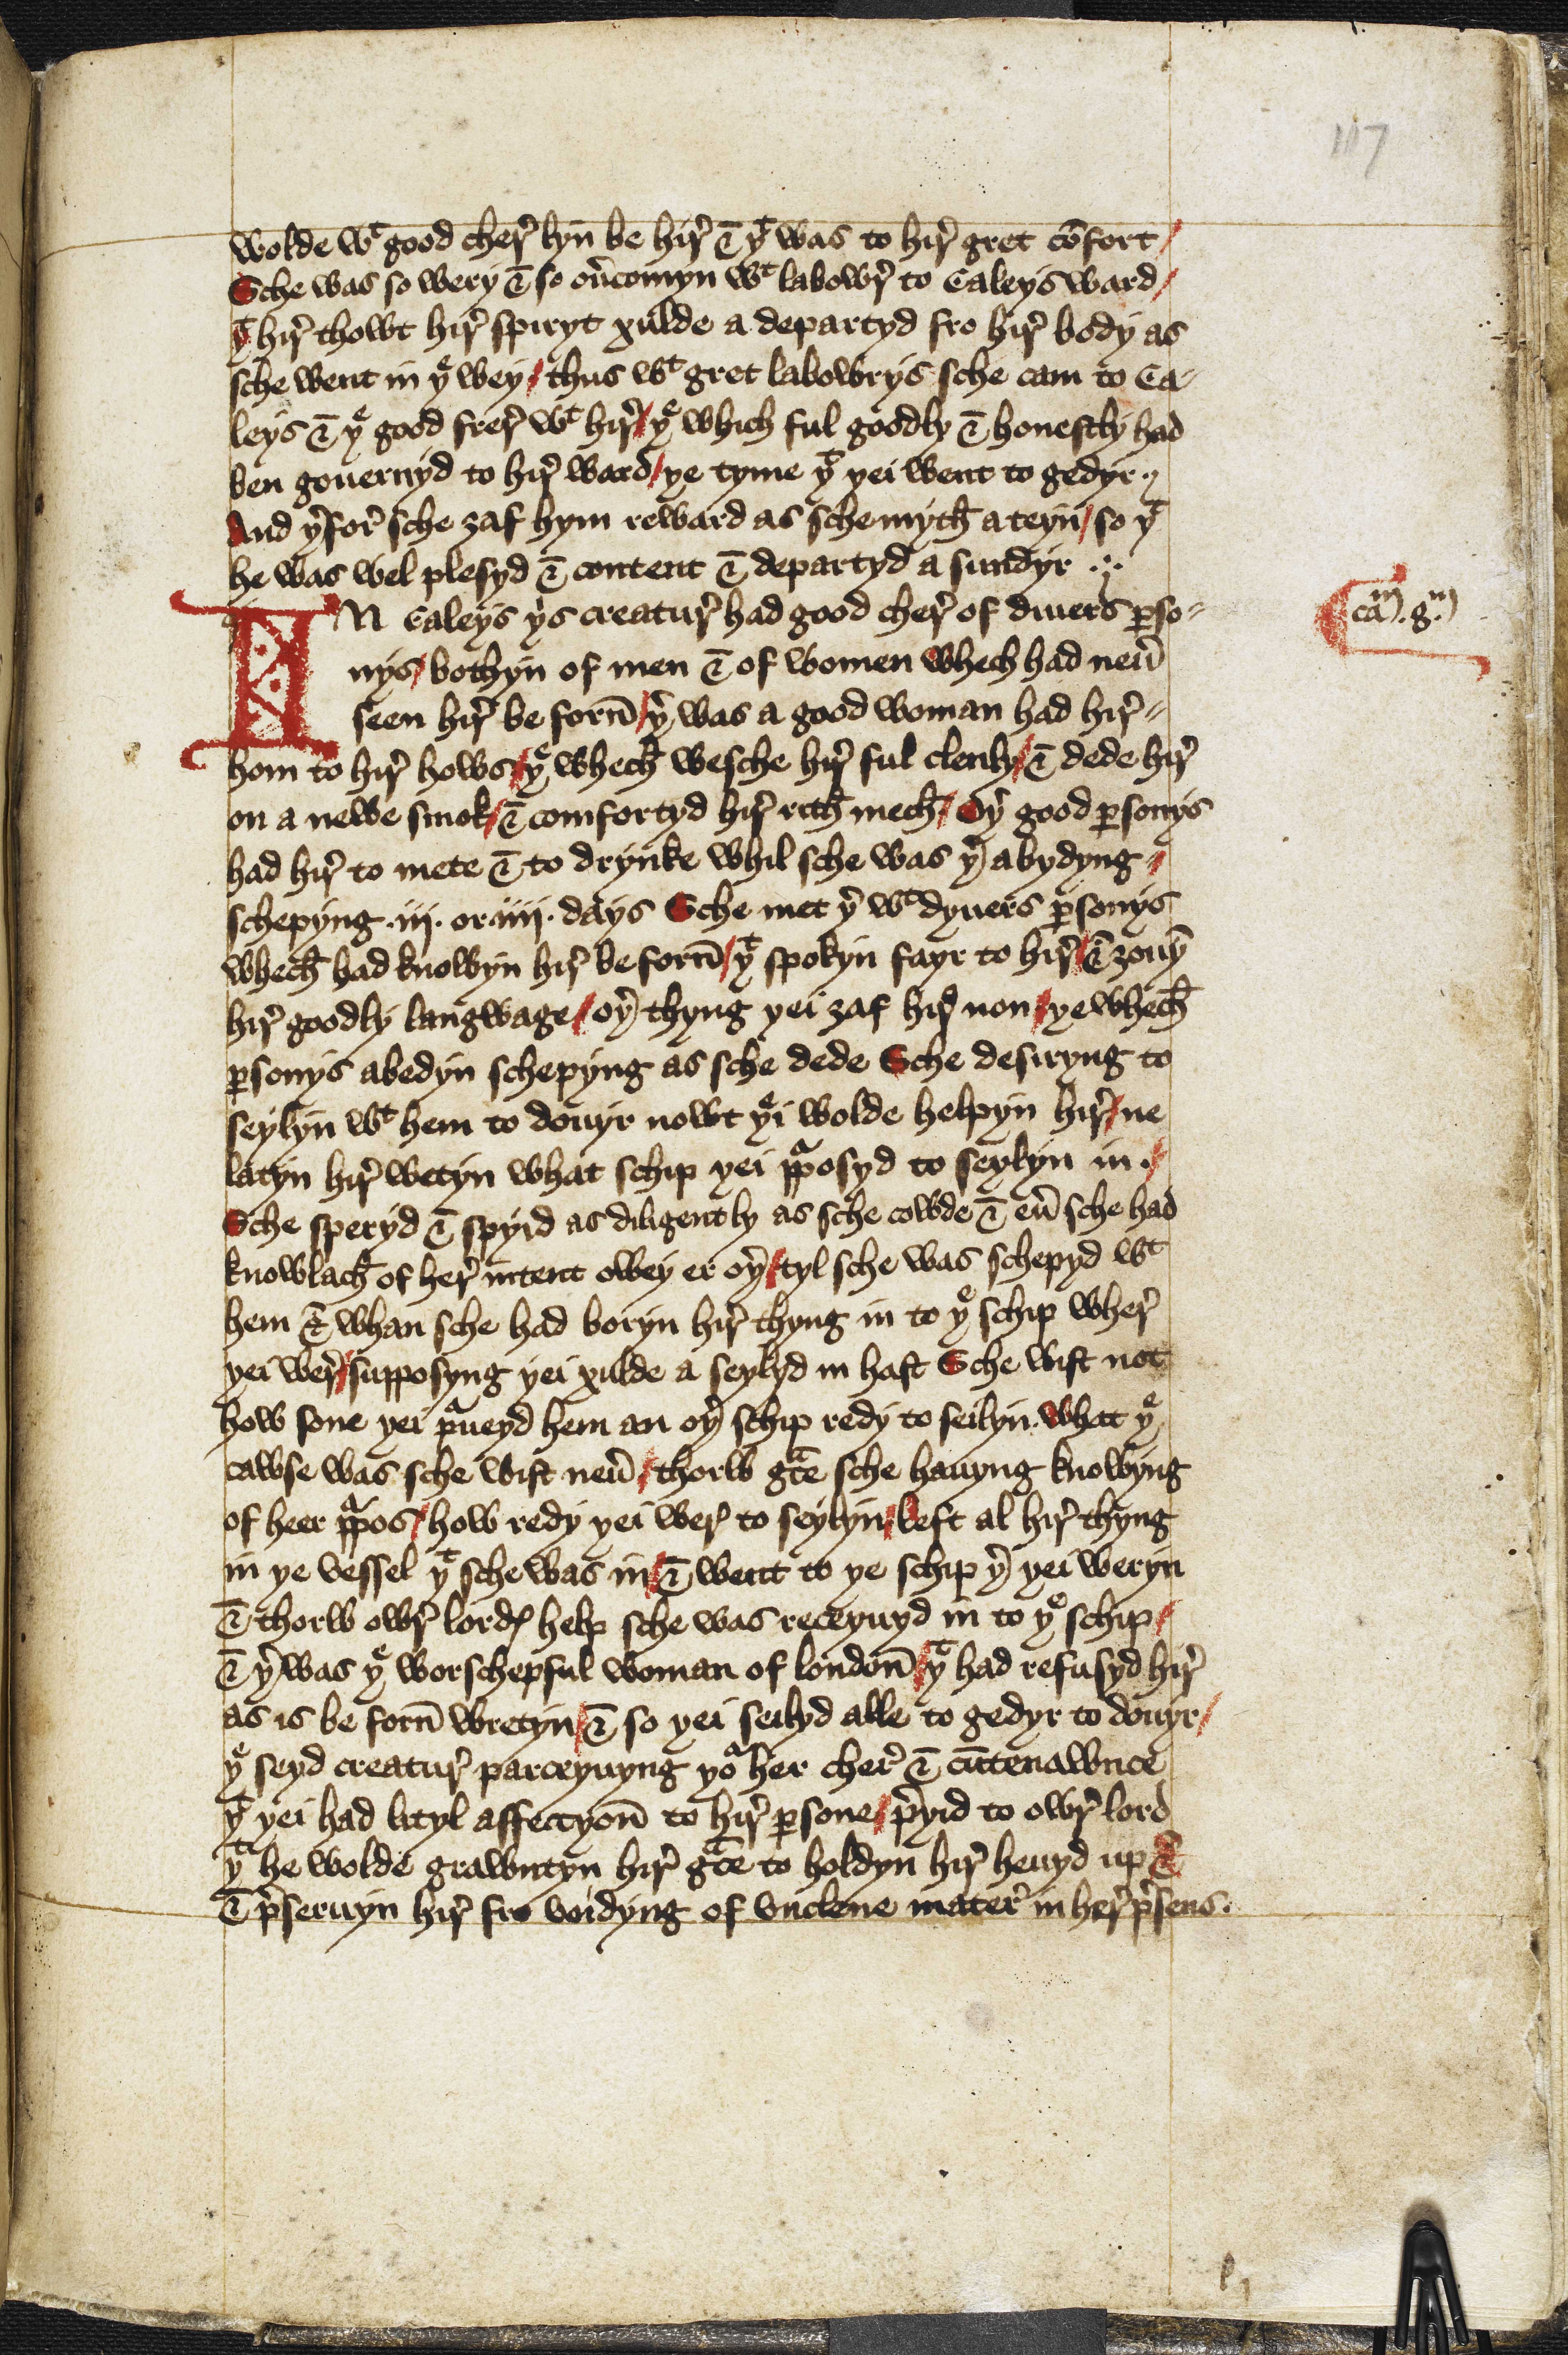 117
wolde wᵗ good cher̛ lyn̄ be hir̛ & yᵗ was to hir̛ gret cōfort /
Sche was so wery & so ou̓comyn wᵗ labowr̛ to Caleys ward /
yᵗ hir̛ thowt hir̛ spiryt xulde a departyd fro hir̛ body as
sche went in yᵉ wey / thus wᵗ gret labowrys sche cam to Ca-
leys & yᵉ good frer̛ wᵗ hir̛ / yᵉ which ful goodly & honestly had
ben gouernyd to hir̛ ward / ye tyme yᵗ yei went to gedyr .,
And y̓for̛ sche zaf hym reward as sche mych̄ a teyn / so yᵗ
he was wel plesyd & content & departyd a sundyr .,.
IN Caleys y̓s creatur̛ had good cher̛ of diuers ꝑso-
nys / bothyn of men & of women whech had neu̓
seen hir̛ be forn̄ / y̓ was a good woman had hir̛ -
hom to hir̛ hows / yᵉ whech̄ wesche hir̛ ful clenly / & dede hir̛
on a newe smok / & comfortyd hir̛ rith̄ mech̄ / Oy̓ good ꝑsonys
had hir̛ to mete & to drynke whil sche was y̓ abydyng /
schepyng .iij. or .iiij. days Sche met y̓ wᵗ dyuers ꝑsonys
whech̄ had knowyn hir̛ beforn̄ / yᵗ spokyn fayr to hir̛ / & zouyn̄
hir̛ goodly langwage / oy̓ thyng yei zaf hir̛ non / ye whech̄
ꝑsonys abedyn schepyng as sche dede Sche desiryng to
seylyn wᵗ hem to douyr nowt yᵉi wolde helpyn hir̛ / ne
latyn hir̛ wetyn what schip yei ꝑᵃposyd to seylyn in . /
Sche speryd & spyid as diligently as sche cowde & eu̓ sche had
knowlach̄ of her̛ intent owey er oy̓ / tyl sche was schepyd wᵗ
hem & whan sche had boryn hir̛ thyng in to yᵉ schip wher̛
yei wer̛ / supposyng yei xulde a seylyd in hast Sche wist not
how sone yei pᵃueyd hem an oy̓ schip redy to seilyn . what yᵉ
cawse was sche wist neu̓ / thorw gᵃce sche hauyng knowyng
of heer ꝑᵃpos / how redy yei wer̛ to seylyn / left al hir̛ thyng
in ye vessel yᵗ sche was in / & went to ye schip y̓ yei weryn
& thorw owr̛ lordꝭ help sche was receyuyd in to yᵉ schip /
& y̓ was yᵉ worschepful woman of london̄ / yᵗ had refusyd hir̛
as is be forn̄ wretyn / & so yei seilyd alle to gedyr to douyr /
yᵉ seyd creatur̛ parceyuyng yoᵃ her cher̛ & cūtenawnce
yᵗ yei had lityl affectyon̄ to hir̛ ꝑsone / p̓yid to owr̛ lord
yᵗ he wolde grawntyn hir̛ gᵃce to holdyn hir̛ heuyd up &
& p̓seruyn hir̛ fro voidyng of vnclene mater̛ in her̛ p̓sens .